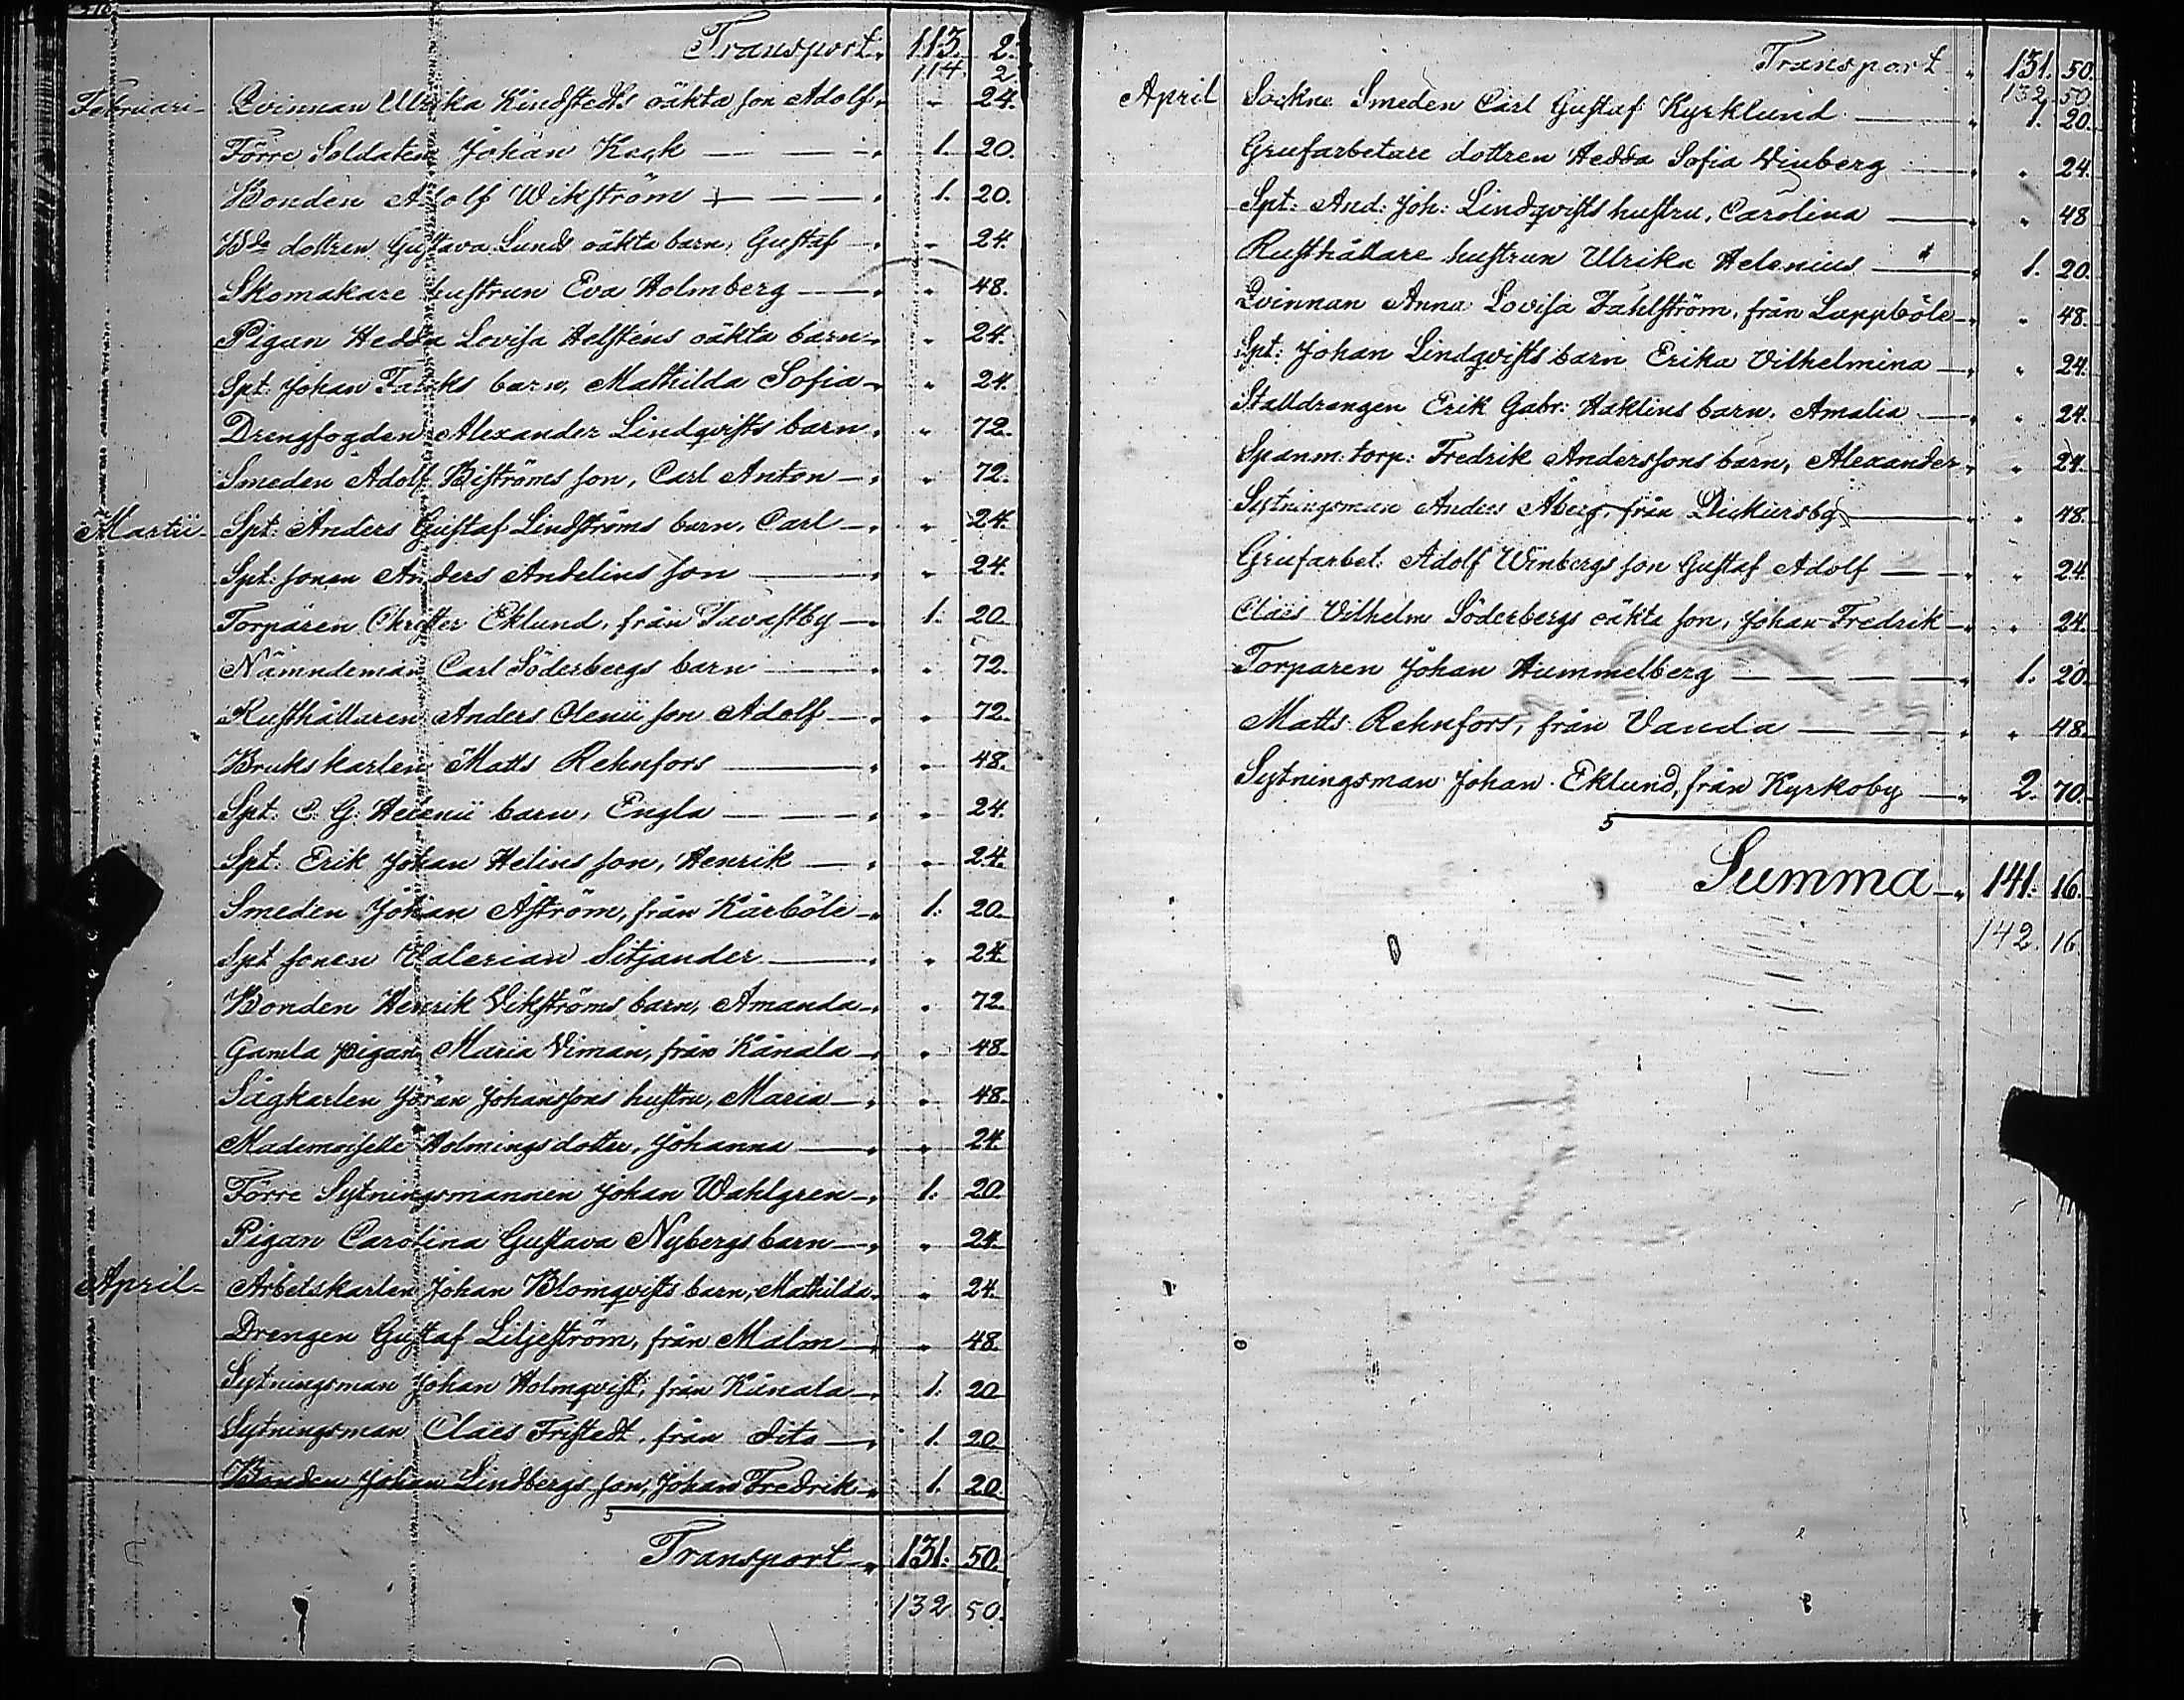 Transport 113. 2.
114. 2
Februari Qvinnan Ulrika Kindstedts oäkta son Adolf " 24.
Förre Soldaten Johan Keck 1. 20.
Bonden Adolf Wikström 1. 20.
dottren Gustava Lunds oäkta barn, Gustaf " 24.
Skomakare hustrun Eva Holmberg " 48.
Pigan Hedda Lovisa Helsténs oäkta barn " 24.
Spt: Johan barn, Mathilda Sofia " 24.
Drengfogden Alexander Lindqvists barn " 72.
Smeden Adolf Biströms son, Carl Anton " 72.
Martii Spt: Anders Gustaf Lindströms barn, Carl " 24.
Spt: sonen Anders Andelins son " 24.
Torparen Christer Eklund, från Tavastby 1. 20.
Nämndeman Carl Söderbergs barn " 72.
Rusthållaren Anders Olenii son Adolf " 72.
Brukskarlen Matts Rehnfors " 48.
Spt: C. G. Helenii barn, Engla " 24.
Spt: Erik Johan Helins son, Henrik " 24.
Smeden Johan Åström, från Kårböle 1. 20.
Spt sonen Valerian Sitjander " 24.
Bonden Henrik Vikströms barn, Amanda " 72.
Gamla pigan Maria Viman, från Kånala " 48.
Sågkarlen Jöran Johanssons hustru, Maria " 48.
Mademoiselle Holmings dotter, Johanna " 24.
Förre Sytningsmannen Johan Wahlgren 1. 20.
Pigan Carolina Gustava Nybergs barn " 24.
April Arbetskarlen Johan Blomqvists barn, Mathilda " 24.
Drengen Gustaf Liljeström, från Malm " 48.
Sytningsman Johan Holmqvist, från Kånala 1. 20
Sytningsman Claes Fristedt, från dito 1. 20
Bonden Johan Lindbergs son, Johan Fredrik 1. 20.
Transport 131. 50.
132. 50.
Transport 131. 50.
132. 50.
April Sockne Smeden Carl Gustaf Kyrklund 1. 20.
Grufarbetare dottren Hedda Sofia Vinberg " 24.
Spt: And: Joh: Lindqvists hustru, Carolina " 48
Rusthållare hustrun Ulrika Helenius 1. 20.
Qvinnan Anna Lovisa Fahlström, från Lappböle " 48.
Spt: Johan Lindqvists barn Erika Vilhelmina " 24.
Stalldrengen Erik Gabr: Haklins barn, Amalia " 24.
Spanm: torp: Fredrik Anderssons barn, Alexander " 24.
Sytningsman Anders Åberg, från Dickursby " 48.
Grufarbet: Adolf Winbergs son Gustaf Adolf " 24.
Claes Vilhelm Söderbergs oäkta son, Johan Fredrik " 24.
Torparen Johan Hummelberg 1. 20.
Matts Rehnfors, från Vanda " 48.
Sytningsman Johan Eklund, från Kyrkoby 2. 70.
Summa 141. 16.
142. 16.